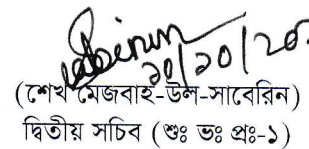 ২০/১০/২০
(শেখ মেজবাহ-উল-সাবেরিন)
দ্বিতীয় সচিব (শুঃ ভঃ প্রঃ-১)